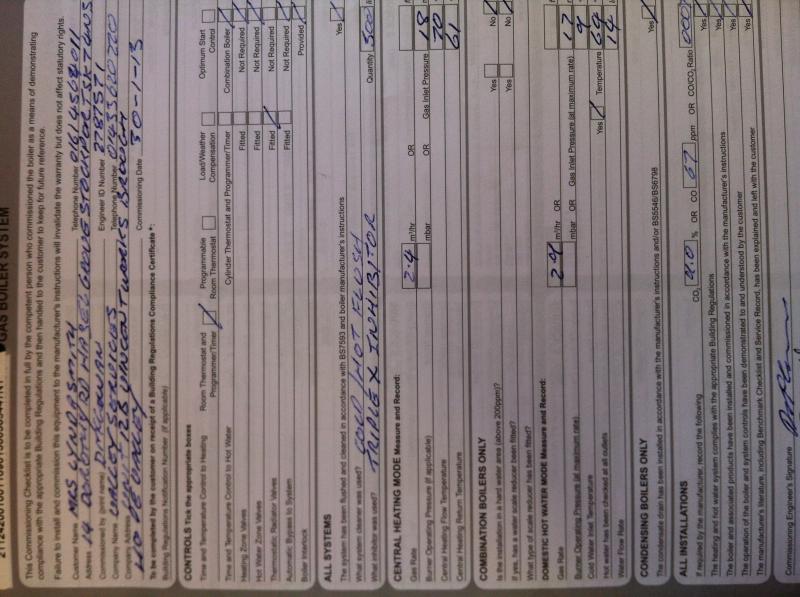 GAS BOILER SYSTEM
This Commissioning Checklist is to be completed in full by the competent person who commissioned the boiler as a means of demonstrating
compliance with the appropriate Building Regulations and then handed to the customer to keep for future reference.
Failure to install and commission this equipment to the manufacturer's instructions will invalidate the warranty but does not affect statutory rights.
Customer Name MRS LYND SMITH Telephone Number
Address 14 HAZEL GROVE STOCKPORT
Commissioned by (print name) Engineer ID Number
Company Name SERVICES Telephone Number
Company Address
Commissioning Date 30-1-13
To be completed by the customer on receipt of a Building Regulations Compliance Certificate*:
Building Regulations Notification Number (if applicable)
CONTROLS Tick the appropriate boxes
Time and Temperature Control to Heating Room Thermostat and Programmer/Timer Programmable Room Thermostat Load/Weather Compensation Optimum Start Control
Time and Temperature Control to Hot Water Cylinder Thermostat and Programmer/Timer Combination Boiler
Heating Zone Valves Fitted Not Required
Hot Water Zone Valves Fitted Not Required
Thermostatic Radiator Valves Fitted Not Required
Automatic Bypass to System Fitted Not Required
Boiler Interlock Provided
ALL SYSTEMS
The system has been flushed and cleaned in accordance with BS7593 and boiler manufacturer's instructions Yes
What system cleaner was used? COLD/HOT FLUSH
What inhibitor was used? TRIPLEX INHIBITOR Quantity 500
CENTRAL HEATING MODE Measure and Record:
Gas Rate 2.4 m³/hr OR
Burner Operating Pressure (if applicable) mbar OR Gas Inlet Pressure 18
Central Heating Flow Temperature 70
Central Heating Return Temperature 61
COMBINATION BOILERS ONLY
Is the installation in a hard water area (above 200ppm)? Yes No
If yes, has a water scale reducer been fitted? Yes No
What type of scale reducer has been fitted?
DOMESTIC HOT WATER MODE Measure and Record:
Gas Rate 2.9 m³/hr OR
Burner Operating Pressure (at maximum rate) mbar OR Gas Inlet Pressure (at maximum rate) 17
Cold Water Inlet Temperature 9
Hot water has been checked at all outlets Yes Temperature 64
Water Flow Rate 14
CONDENSING BOILERS ONLY
The condensate drain has been installed in accordance with the manufacturer's instructions and/or BS5546/BS6798 Yes
ALL INSTALLATIONS
If required by the manufacturer, record the following CO₂ 9.0 % OR CO 67 ppm OR CO/CO₂ Ratio
The heating and hot water system complies with the appropriate Building Regulations Yes
The boiler and associated products have been installed and commissioned in accordance with the manufacturer's instructions Yes
The operation of the boiler and system controls have been demonstrated to and understood by the customer Yes
The manufacturer's literature, including Benchmark Checklist and Service Record, has been explained and left with the customer Yes
Commissioning Engineer's Signature